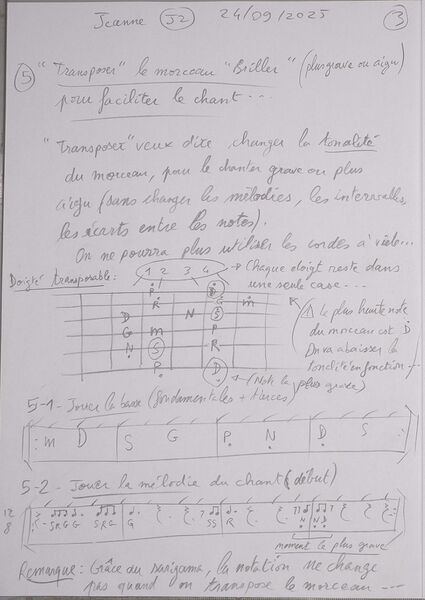 Jeanne J2 24/09/2025 3
5 "Transposer" le morceau "Briller" (plus grave ou aigu)
pour faciliter le chant ...
"Transposer" veux dire, changer la tonalité
du morceau, pour le chanter grave ou plus
aigu (sans changer les mélodies, les intervalles,
les écarts entre les notes).
On ne pourra plus utiliser les cordes à vide...
Doigté transposable: 1 2 3 4 → Chaque doigt reste dans
une seule case...
P D
R G m
D N S
G m P
N S R
P D ← (Note la plus grave)
⚠ le plus haute note
du morceau est D
On va abaisser la
tonalité en fonction
5-1- Jouer la basse (fondamentales + tierces)
m D S G P N D S
5-2- Jouer la mélodie du chant (début)
12 8 S R G G S R G G S S R N N D
moment le plus grave
Remarque: Grâce au sarigama, la notation ne change
pas quand on transpose le morceau ...